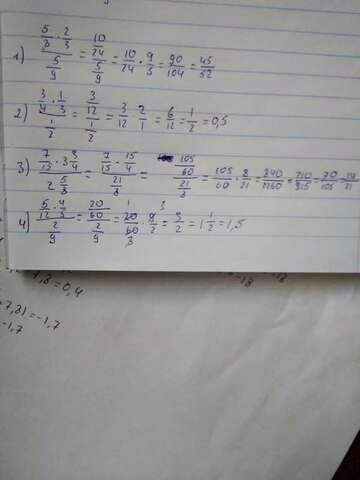 1) (5/8 · 2/3)/(5/9) = (10/24)/(5/9) = 10/24 · 9/5 = 90/104 = 45/52
2) (3/4 · 1/3)/(1/2) = (3/12)/(1/2) = 3/12 · 2/1 = 6/12 = 1/2 = 0,5
3) (7/15 · 3 3/4)/(2 5/8) = (7/15 · 15/4)/(21/8) = (105/60)/(21/8) = 105/60 · 8/21 =
4) (5/12 · 4/5)/(2/9) = (20/60)/(2/9) = 20/60 · 9/2 = 3/2 = 1 1/2 = 1,5
= 0,4
7,21) = -1,7
-1,7